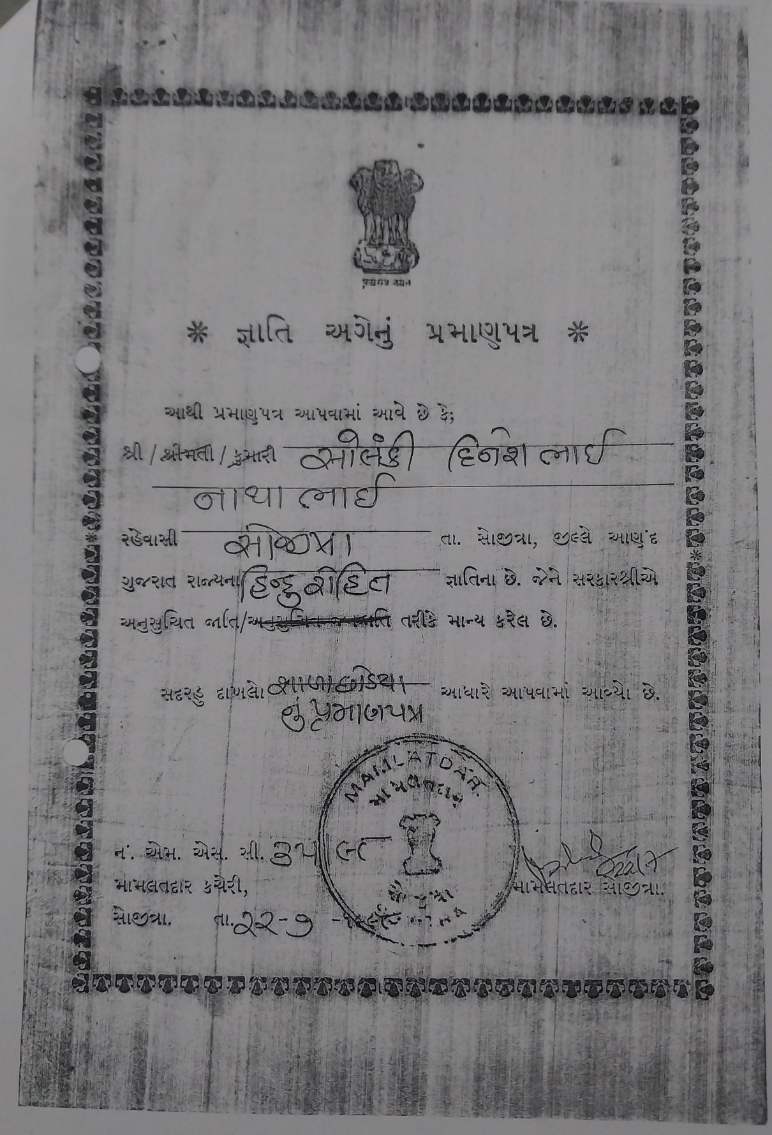 * જ્ઞાતિ અગેનું પ્રમાણપત્ર *
આથી પ્રમાણપત્ર આપવામાં આવે છે કે;
શ્રી / શ્રીમતી / કુમારી સોલંકી દિનેશભાઈ
નાથાભાઈ
રહેવાસી સોજીત્રા તા. સોજીત્રા, જીલ્લે આણંદ
ગુજરાત રાજ્યના હિન્દુ રોહિત જ્ઞાતિના છે. જેને સરકારશ્રીએ
અનુસુચિત જાતિ/અનુસુચિત જનજાતિ તરીકે માન્ય કરેલ છે.
સદરહુ દાખલો શાળા છોડયા આધારે આપવામાં આવ્યો છે.
નું પ્રમાણપત્ર
MAMLATDAR.
મામલતદાર
નં. એમ. એસ. સી. ૩૫
મામલતદાર કચેરી, મામલતદાર સોજીત્રા.
સોજીત્રા. તા. ૨૨-૭